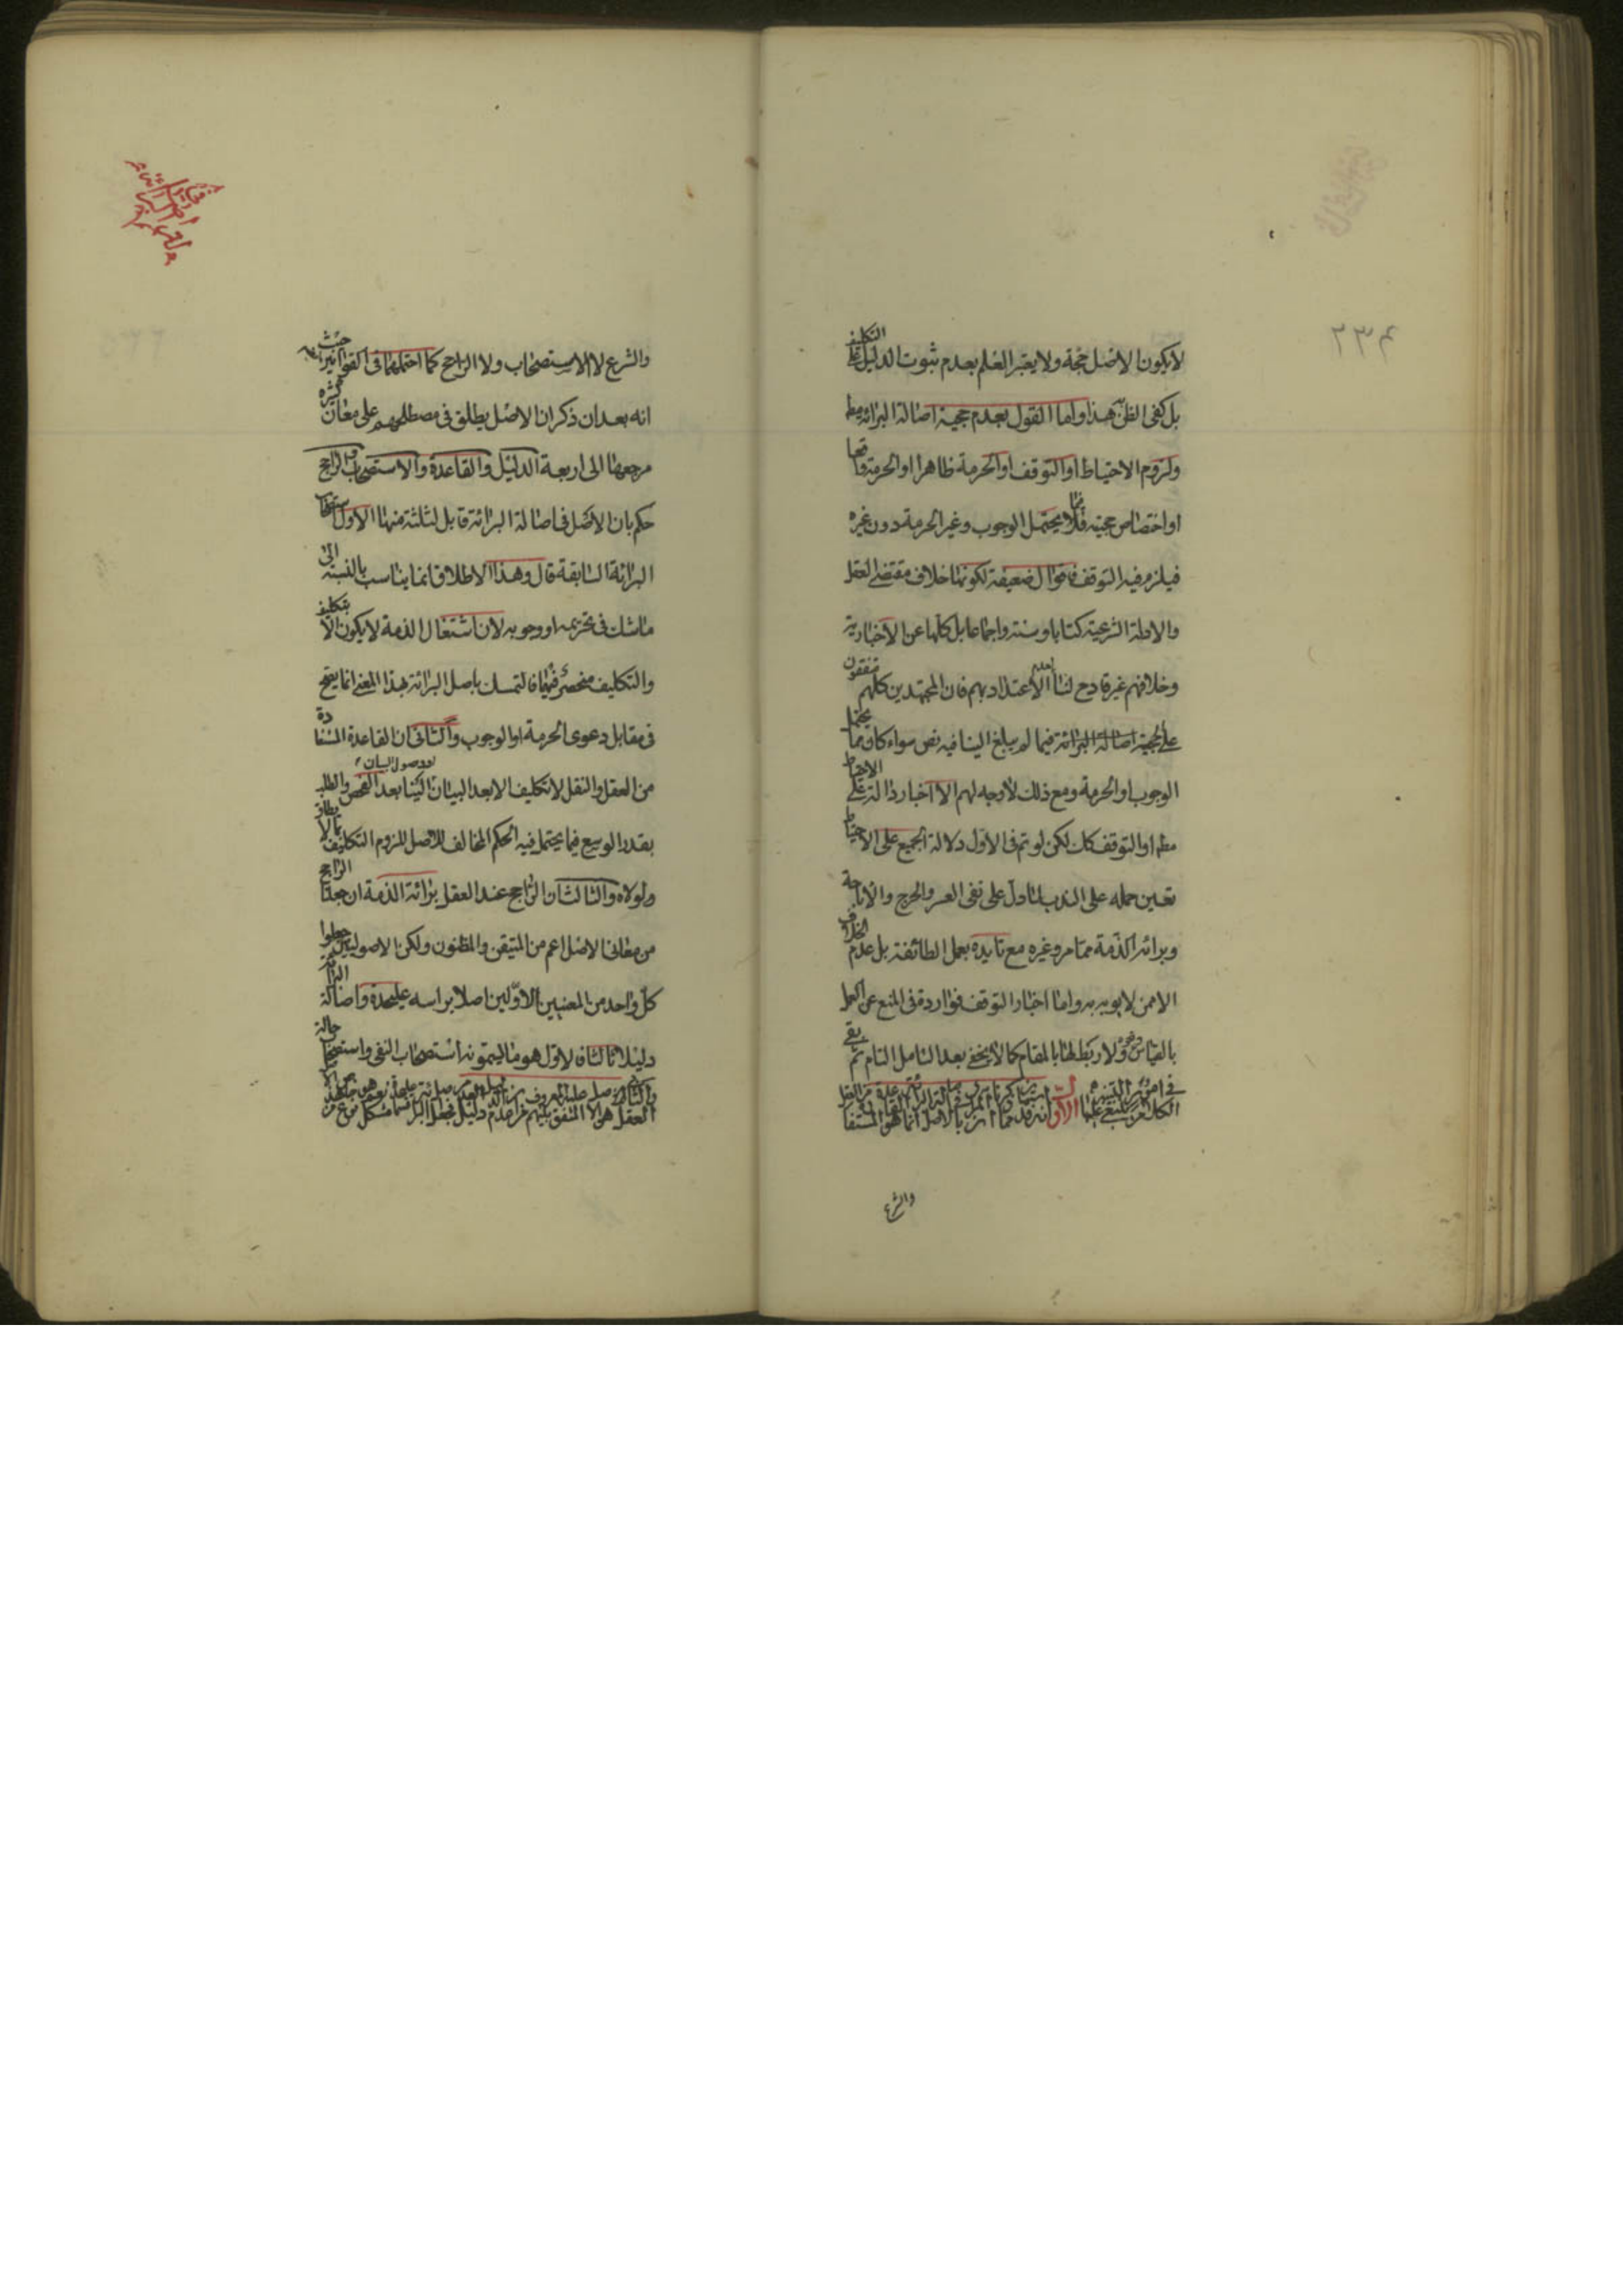 ٢٣٤
لا يكون الاصل حجة ولا يعتبر العلم بعدم ثبوت الدليل على التكليف
بل كفى الظن هذا واما القول بعدم حجية اصالة البرائة مطر
ولزوم الاحتياط او التوقف او الحرمة ظاهرا او الحرمة واقعا
او اختصاص حجيته بما يحتمل الوجوب وغير الحرمة دون غيره
فيلزم فيه التوقف فاقوال ضعيفة لكونها خلاف مقتضى العقل
والادلة الشرعية كتابا وسنة واجماعا بل كلها عن الاخبارية
وخلافهم غير قادح لنا لعدم الاعتداد بهم فان المجتهدين كلهم متفقون
على حجية اصالة البرائة فيما لم يبلغ الينا فيه نص سواء كان مما يحتمل
الوجوب او الحرمة ومع ذلك لا وجه لهم الا اخبار دالة على الاحتياط
مطر او التوقف كك لكن لو تم فى الاول دلالة الجميع على الاحتياط
تعين حمله على الندب لما دل على نفى العسر والحرج والاباحة
وبرائة الذمة مما مر وغيره مع تايده بعمل الطائفة بل عدم الخلاف
الا ممن لا يوبه به واما اخبار التوقف فواردة فى المنع عن العمل
بالقياس ونحوه ولا ربط لها بالمقام كما لا يخفى بعد التامل التام ثم بقى
فى امور ينبغى التنبيه عليها الاول
والشرع
والشرع لا الاستصحاب ولا الراجح كما احتملهما فى القوانين حيث
انه بعد ان ذكر ان الاصل يطلق فى مصطلحهم على معان كثيرة
مرجعها الى اربعة الدليل والقاعدة والاستصحاب والراجح
حكم بان الاصل فى اصالة البرائة قابل لثلثة منها الاول استصحاب
البرائة السابقة قال وهذا الاطلاق انما يناسب بالنسبة الى
ما شك فى تحريمه او وجوبه لان اشتغال الذمة لا يكون الا بتكليف
والتكليف منحصر فيهما فالتمسك باصل البرائة بهذا المعنى انما يقع
فى مقابل دعوى الحرمة او الوجوب والثانى ان القاعدة المستفادة
من العقل والنقل لا تكليف الا بعد البيان ووصول البيان الينا بعد الفحص والطلب
بقدر الوسع فيما يحتمل فيه الحكم المخالف للاصل للزوم التكليف بما لا يطاق
لولاه والثالث ان الراجح عند العقل برائة الذمة ان جعلنا الراجح
من معانى الاصل اعم من المتيقن والمظنون ولكن الاصوليين جعلوا
كل واحد من المعنيين الاولين اصلا براسه عليحدة واصالة البرائة
دليلا ثالثا فالاول هو ما يسمونه استصحاب النفى واستصحاب حالة
العقل